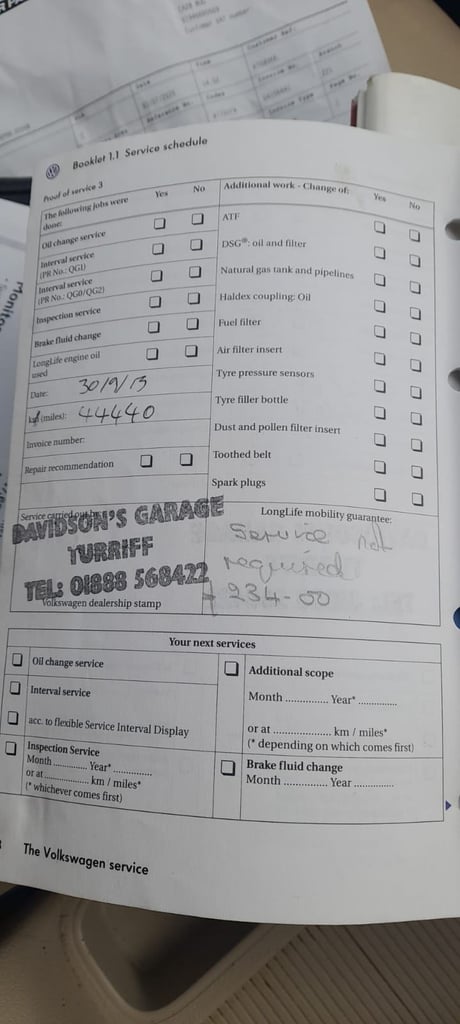 Customer VAT number
Date
Time
Customer Ref:
Reference No.
Codes
Invoice No.
Branch
Invoice Type
Page No.
Booklet 1.1 Service schedule
Proof of service 3
The following jobs were done:
Yes No
Oil change service
Interval service
(PR No.: QG1)
Interval service
(PR No.: QG0/QG2)
Inspection service
Brake fluid change
LongLife engine oil
used
Date: 30/9/13
km (miles): 44440
Invoice number:
Repair recommendation
Service carried out by:
DAVIDSON'S GARAGE
TURRIFF
TEL: 01888 568422
Volkswagen dealership stamp
Additional work - Change of: Yes No
ATF
DSG®: oil and filter
Natural gas tank and pipelines
Haldex coupling: Oil
Fuel filter
Air filter insert
Tyre pressure sensors
Tyre filler bottle
Dust and pollen filter insert
Toothed belt
Spark plugs
LongLife mobility guarantee:
Service not
required
234-00
Your next services
Oil change service
Interval service
acc. to flexible Service Interval Display
Inspection Service
Month ............ Year* ............
or at ............ km / miles*
(* whichever comes first)
Additional scope
Month ............ Year* ............
or at ............ km / miles*
(* depending on which comes first)
Brake fluid change
Month ............ Year ............
The Volkswagen service